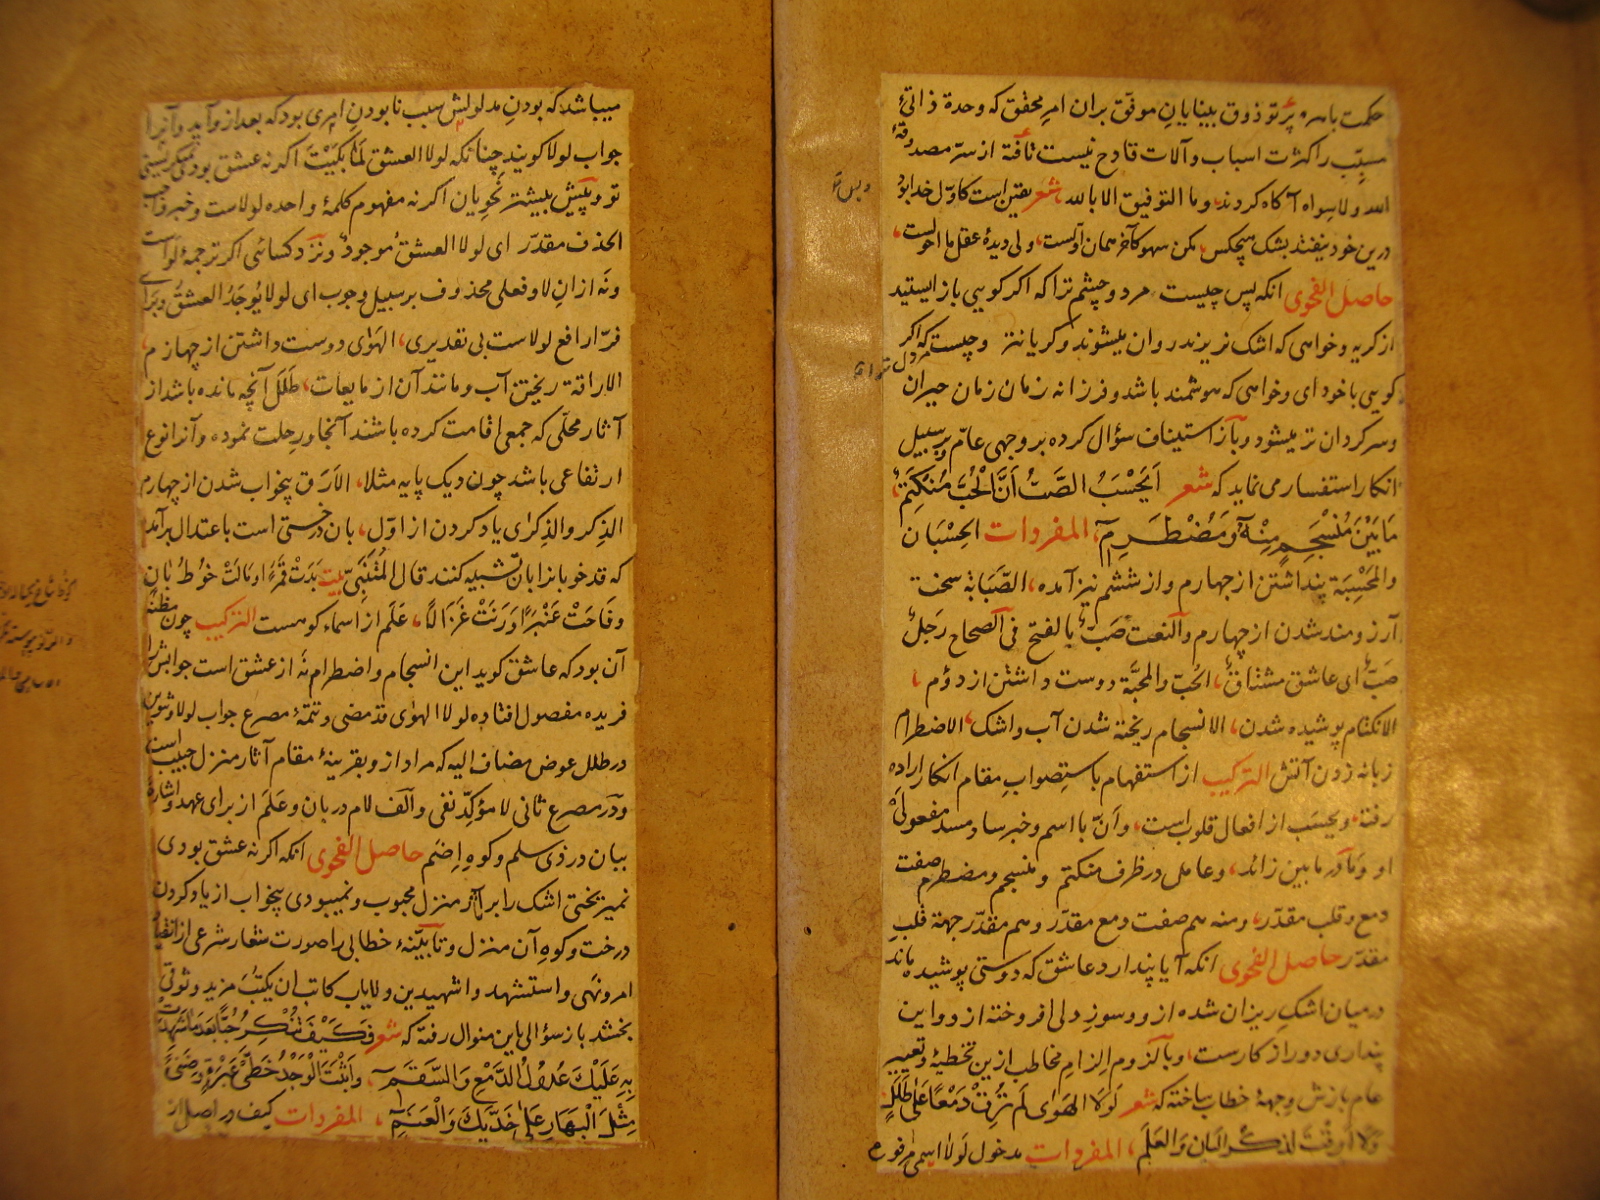 حکمت باسره پرتو ذوق بینایان موفق بران امر محقق که وحدة ذاتئ
مسبّب را کثرت اسباب و آلات قادح نیست تافته از سرّ مصدوقهٔ
الله ولا سواه آکاه کردند وما التوفیق الا بالله شعر یقین است کاوّل خدا بود
درین خود نیفتد بشک هیچکس مکن سهو کآخر همان اوّلست ولی دیدهٔ عقل ما احولست
حاصل الفحوی انکه پس چیست مر دو چشم ترا که اکر کویی باز ایستید
از کریه و خواهی که اشک نریزند روان میشوند و کریانتر و چیست مر دل ترا که اکر
کویی باخود ای و خواهی که هوشمند باشد و فرزانه زمان زمان حیران
و سرکردان تر میشود و باز استیناف سؤال کرده بر وجهی عامّ و بر سبیل
انکار استفسار می نماید که شعر اَیَحْسَبُ الصَّبُّ اَنَّ الْحُبَّ مُنْکَتِمٌ
مَا بَیْنَ مُنْسَجِمٍ مِنْهُ وَمُضْطَرِمِ المفردات الحِسْبَان
والمَحْسِبَة پنداشتن از چهارم و از ششم نیز آمده الصَّبَابَة سخت
آرزومند شدن از چهارم والنعت صَبٌّ بالفتح فی الصحاح رَجلٌ
صَبٌّ ای عاشق مشتاقٌ الحُبّ والمحبَّة دوست داشتن از دوُم
الانکتام پوشیده شدن الانسجام ریخته شدن آب و اشک الاضطرام
زبانه زدن آتش الترکیب از استفهام باستصوابِ مقام انکار ارادِه
رفته ویحسَب از افعال قلوب است وانّ با اسم و خبر ساد مسد مفعولَیْ
او وَما در ما بین زائد وعامل در ظرف منکتم و منسجم و مضطرم صفت
دمع و قلب مقدّر و منه هم صفت دمع مقدّر و هم مقدّر جهة قلب
مقدّر حاصل الفحوی انکه آیا پندارد عاشق که دوستی پوشیده ماند
درمیان اشکِ ریزان شده از و و سوزِ دلی افروخته از و و این
پنداری دور از کارست و با لزوم الزام مخاطب ازین تخطیهٔ و تعییر
عام بازش وجههٔ خطاب ساخته که شعر لَولَا الهَوٰی لَم تُرِقْ دَمْعًا عَلٰی طَلَلٍ
وَلَا اَرِقْتَ لِذِکْرِ الْبَانِ وَالعَلَمِ المفردات مدخول لَولَا اسمی مرفوع
میباشد که بودنِ مدلولش سبب نابودنِ امری بود که بعد از و آید و آنرا
جواب لولا کویند چنانکه لولا العشق لَمَا بَکَیْتَ اکر نه عشق بودی میکریستی
تو و پیش بیشتر نَحوِیان اکر نه مفهوم کلمهٔ واحده لولاست و خبر واجب
الحذف مقدّر ای لولا العشقُ موجودٌ و نزد کسائی اکر ترجمهٔ لو است
و نَه از انِ لا و فعلی محذوف بر سبیل وجوب ای لولا یُوجَدُ العشقُ و برای
فرّا رافع لولاست بی تقدیری الهَوٰی دوست داشتن از چهارم
الاراقة ریختن آب و مانند آن از مایعات طَلَل آنچه مانده باشد از
آثار محلّی که جمعی اقامت کرده باشند آنجا و رحلت نموده و آنرا نوع
ارتفاعی باشد چون دیک پایه مثلا الاَرَق بیخواب شدن از چهارم
الذِکر والذِکرٰی یاد کردن از اوّل بان درختی است باعتدال برآمد
که قد خوبانرا بان تشبیه کنند قال المُتَنَبّی بیت بَدَتْ قَمَرًا وَمَالَتْ خُوطَ بَانٍ
وفَاحَتْ عَنْبَرًا وَرَنَتْ غَزَالًا عَلَم از اسماء کوهست الترکیب چون مظنّهٔ
آن بود که عاشق کوید این انسجام و اضطرام نَه از عشق است جوابش را
فریده مفصول افتاده لولا الهوٰی قد مضی و تتمّهٔ مصرع جواب لولا و تنوین
در طلل عوض مضاف الیه که مراد از و بقرینهٔ مقام آثار منزل حبیب است
و در مصرع ثانی لا مؤکدِّ نفی و الف لام در بان و عَلَم از برای عهد و اشارهٔ
ببان در ذی سلم و کوهِ اِضَم حاصل الفحوی انکه اکر نه عشق بودی
نمیریختی اشک را بر آثار منزل محبوب و نمیبودی بیخواب از یاد کردن
درخت و کوهِ آن منزل و تا بیّنهٔ خطابی را صورت شعار شرعی از اتقیا
امر و نهی و استشهد و اشهیدین ولا یاب کاتب ان یکتب مزید وثوقی
بخشد باز سؤالی باین منوال رفته که شعر فَکَیْفَ تُنْکِرُ حُبًّا بَعْدَ مَا شَهِدَتْ
بِهِ عَلَیْكَ عُدُولُ الدَّمْعِ وَالسَّقَمِ وَاَثْبَتَ الْوَجْدُ خَطَّیْ عَبْرَةٍ وَضَنًی
مِثْلَ الْبَهَارِ عَلٰی خَدَّیْكَ وَالْعَنَمِ المفردات کیف در اصل از